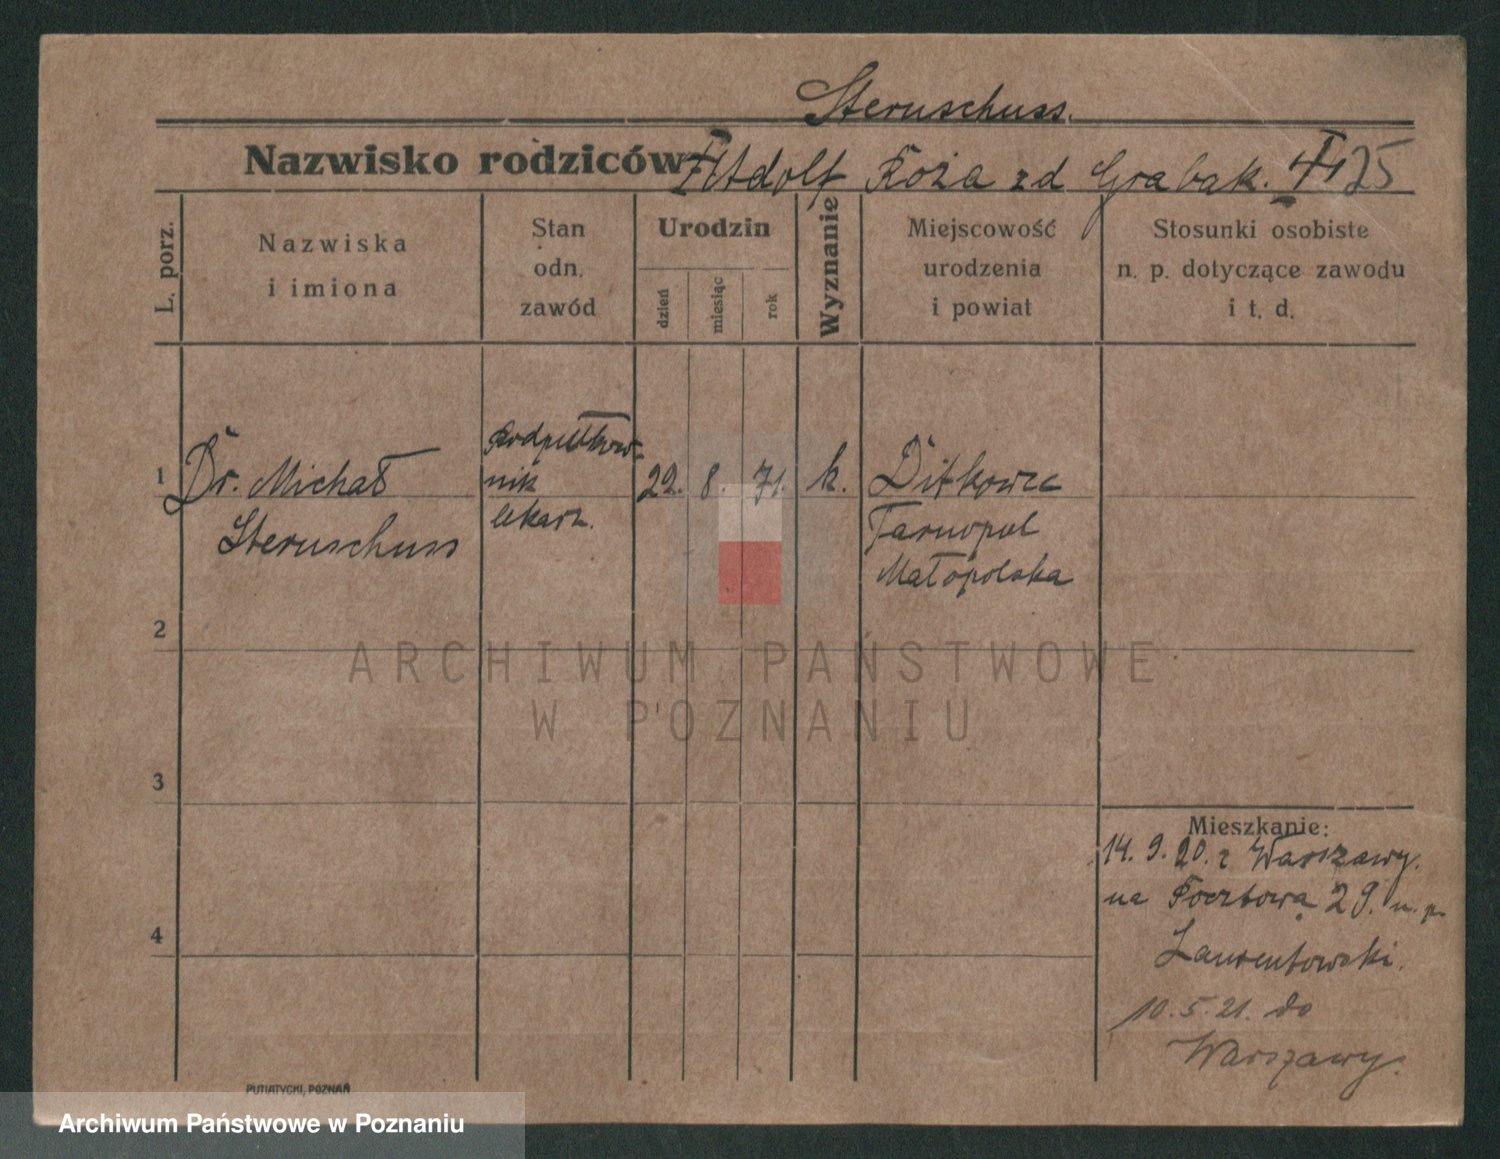 Sternschuss.
Nazwisko rodziców Adolf Róża zd Grabak. 25
L. porz.
Nazwiska
i imiona
Stan
odn.
zawód
Urodzin
dzień
miesiąc
rok
Wyznanie
Miejscowość
urodzenia
i powiat
Stosunki osobiste
n. p. dotyczące zawodu
i t. d.
1
Dr. Michał
Sternschuss
Podpułkow-
nik
lekarz.
22. 8. 71. k.
Ditkowce
Tarnopol
Małopolska
2
ARCHIWUM PAŃSTWOWE
W POZNANIU
3
Mieszkanie:
14. 9. 20. z Warszawy.
na Pocztowa 29. u. p.
4
10. 5. 21. do
Warszawy.
PUTIATYCKI, POZNAŃ
Archiwum Państwowe w Poznaniu